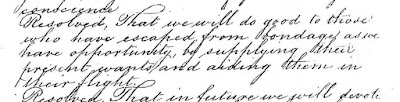 conscience
Resolved, That we will do good to those
who have escaped from bondage as we
have opportunity, by supplying their
present wants and aiding them in
their flight.
Resolved, That in future we will devote